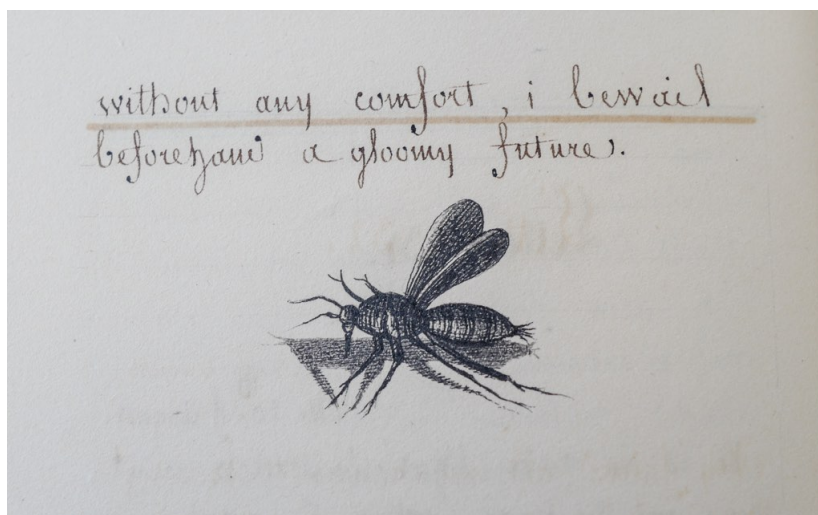 without any comfort, i bewail
beforehand a gloomy future.